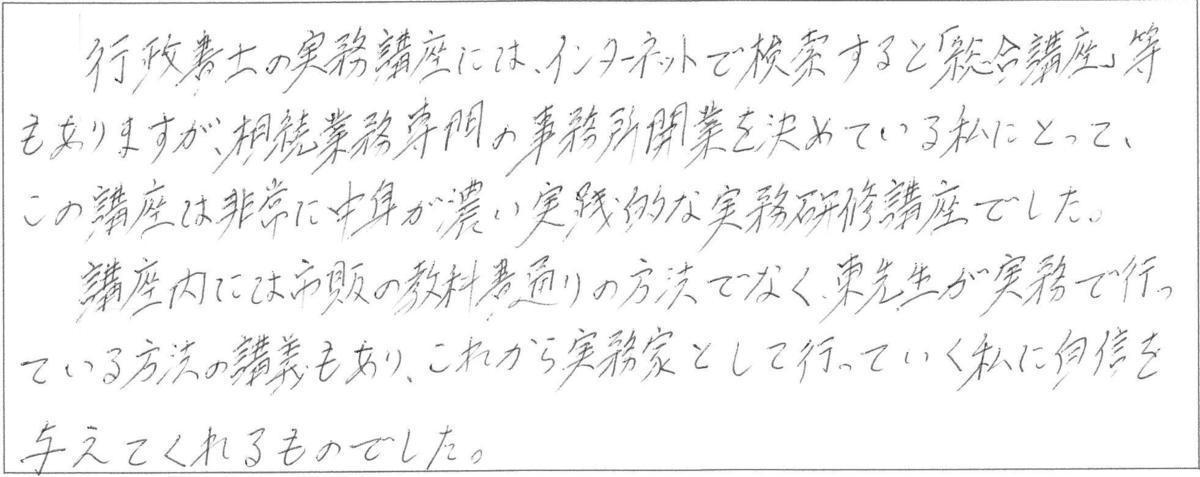 行政書士の実務講座には、インターネットで検索すると「総合講座」等
もありますが、相続業務専門の事務所開業を決めている私にとって、
この講座は非常に中身が濃い実践的な実務研修講座でした。
講座内には市販の教科書通りの方法でなく、東先生が実務で行っ
ている方法の講義もあり、これから実務家として行っていく私に自信を
与えてくれるものでした。